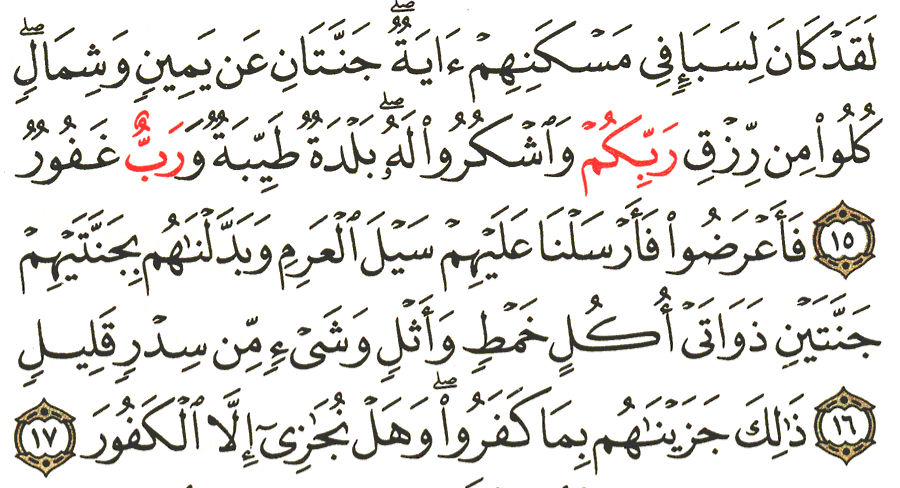 لَقَدْ كَانَ لِسَبَإٍ فِي مَسْكَنِهِمْ ءَايَةٌ ۖ جَنَّتَانِ عَن يَمِينٍ وَشِمَالٍ ۖ
كُلُوا۟ مِن رِّزْقِ رَبِّكُمْ وَٱشْكُرُوا۟ لَهُۥ ۖ بَلْدَةٌ طَيِّبَةٌ وَرَبٌّ غَفُورٌ
١٥ فَأَعْرَضُوا۟ فَأَرْسَلْنَا عَلَيْهِمْ سَيْلَ ٱلْعَرِمِ وَبَدَّلْنَٰهُم بِجَنَّتَيْهِمْ
جَنَّتَيْنِ ذَوَاتَىْ أُكُلٍ خَمْطٍ وَأَثْلٍ وَشَىْءٍ مِّن سِدْرٍ قَلِيلٍ
١٦ ذَٰلِكَ جَزَيْنَٰهُم بِمَا كَفَرُوا۟ ۖ وَهَلْ نُجَٰزِىٓ إِلَّا ٱلْكَفُورَ ١٧